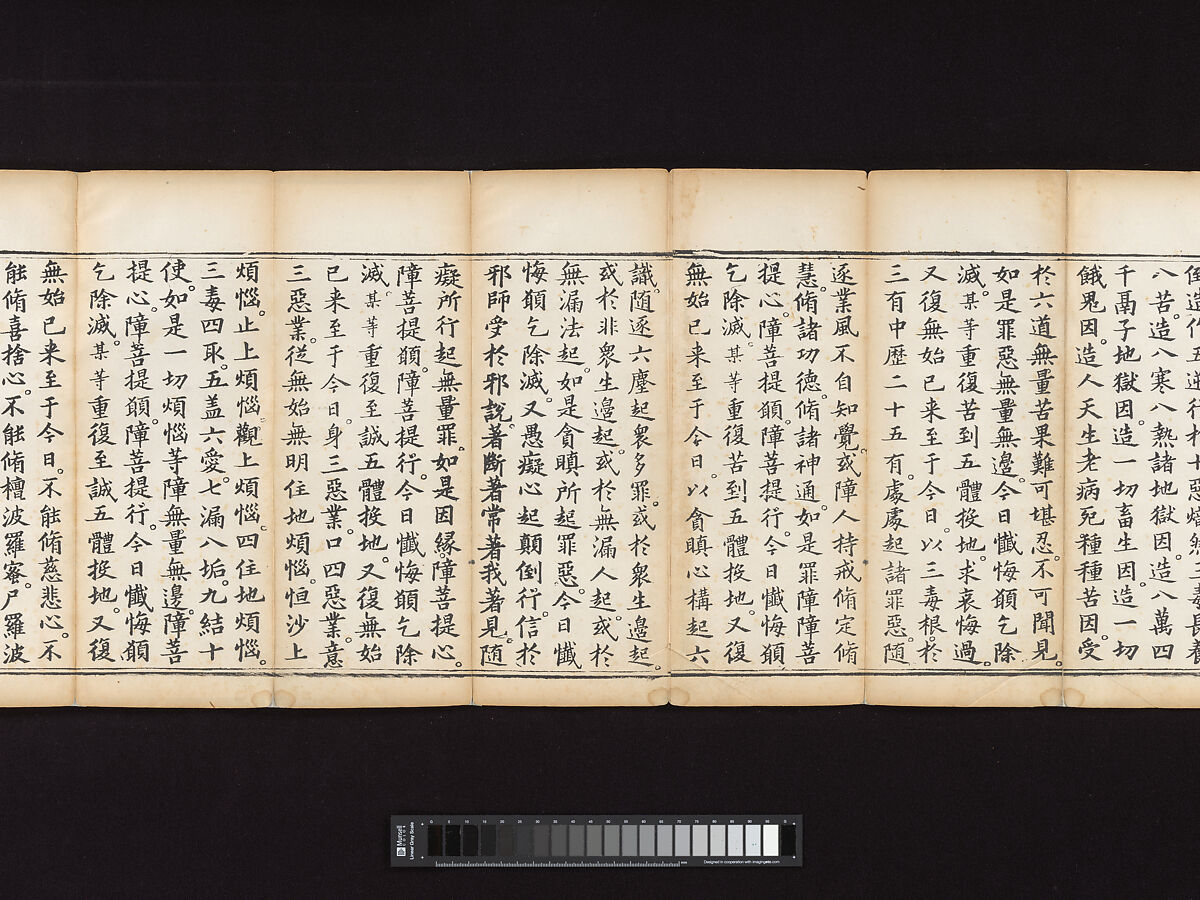 八苦。造八寒八熱諸地獄因。造八萬四
千鬲子地獄因。造一切畜生因。造一切
餓鬼因。造人天生老病死種種苦因。受
於六道無量苦果難可堪忍。不可聞見。
如是罪惡無量無邊。今日懺悔願乞除
滅。某等重復苦到五體投地。求哀悔過。
又復無始已來至于今日。以三毒根。於
三有中歷二十五有。處處起諸罪惡。隨
逐業風不自知覺。或障人持戒脩定脩
慧。脩諸功德。脩諸神通。如是罪障障菩
提心。障菩提願。障菩提行。今日懺悔願
乞除滅。某等重復苦到五體投地。又復
無始已來至于今日。以貪瞋心構起六
識。隨逐六塵起衆多罪。或於衆生邊起。
或於非衆生邊起。或於無漏人起。或於
無漏法起。如是貪瞋所起罪惡。今日懺
悔願乞除滅。又愚癡心起顛倒行。信於
邪師受於邪說。著斷著常。著我著見。隨
癡所行起無量罪。如是因緣。障菩提心。
障菩提願。障菩提行。今日懺悔願乞除
滅。某等重復至誠五體投地。又復無始
已來至于今日。身三惡業。口四惡業。意
三惡業。從無始無明住地煩惱。恒沙上
煩惱。止上煩惱。觀上煩惱。四住地煩惱。
三毒四取。五盖六愛。七漏八垢。九結十
使。如是一切煩惱等障無量無邊。障菩
提心。障菩提願。障菩提行。今日懺悔願
乞除滅。某等重復至誠五體投地。又復
無始已來至于今日。不能脩慈悲心。不
能脩喜捨心。不能脩檀波羅蜜。尸羅波
Munsell
COLOR
Linear Gray Scale
0 5 10 15 20 25 30 35 40 45 50 55 60 65 70 75 80 85 90 95
Designed in cooperation with imagingetc.com